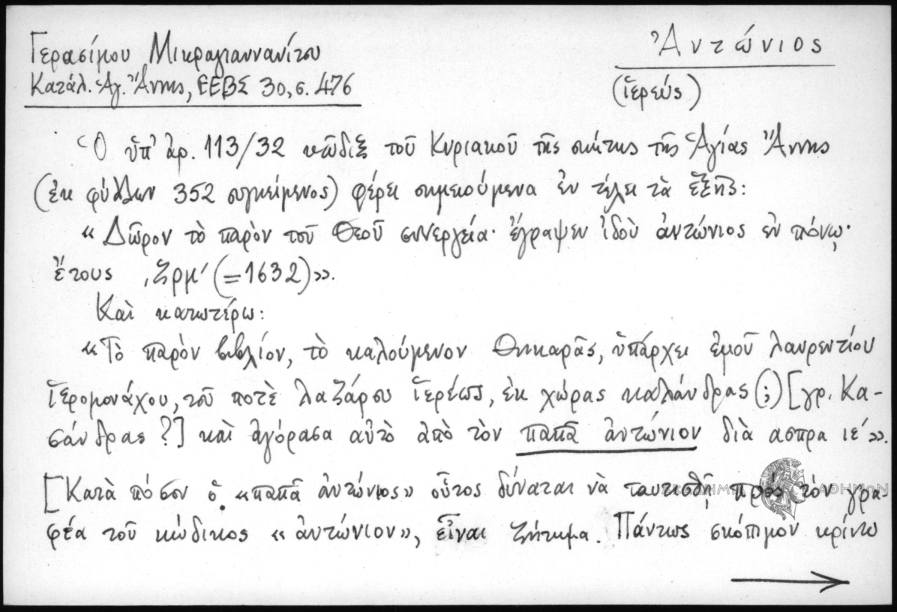 Γερασίμου Μικραγιαννανίτου
Κατάλ. Ἁγ. Ἄννης, ΕΕΒΣ 30, σ. 476
Ἀντώνιος
(ἱερεύς)
Ὁ ὑπ' ἀρ. 113/32 κῶδιξ τοῦ Κυριακοῦ τῆς σκήτης τῆς Ἁγίας Ἄννης
(ἐκ φύλλων 352 συγκείμενος) φέρει σημειούμενα ἐν τέλει τὰ ἑξῆς:
« Δῶρον τὸ παρὸν τοῦ Θεοῦ συνεργεία· ἔγραψεν ἰδοὺ ἀντώνιος ἐν πόνῳ·
ἔτους ͵ζρμ' (=1632)».
Καὶ κατωτέρω:
«Τὸ παρὸν βιβλίον, τὸ καλούμενον Θηκαρᾶς, ὑπάρχει ἐμοῦ λαυρεντίου
ἱερομονάχου, τοῦ ποτὲ λαζάρου ἱερέως, ἐκ χώρας καλάνδρας (;) [γρ. Κα-
σάνδρας ?] καὶ ἀγόρασα αὐτὸ ἀπὸ τὸν παπᾶ ἀντώνιον διὰ ασπρα ιε'».
[Κατὰ πόσον ὁ «παπᾶ ἀντώνιος» οὗτος δύναται νὰ ταυτισθῇ πρὸς τὸν γρα-
φέα τοῦ κώδικος «ἀντώνιον», εἶναι ζήτημα. Πάντως σκόπιμον κρίνω
ΑΘΗΝΩΝ